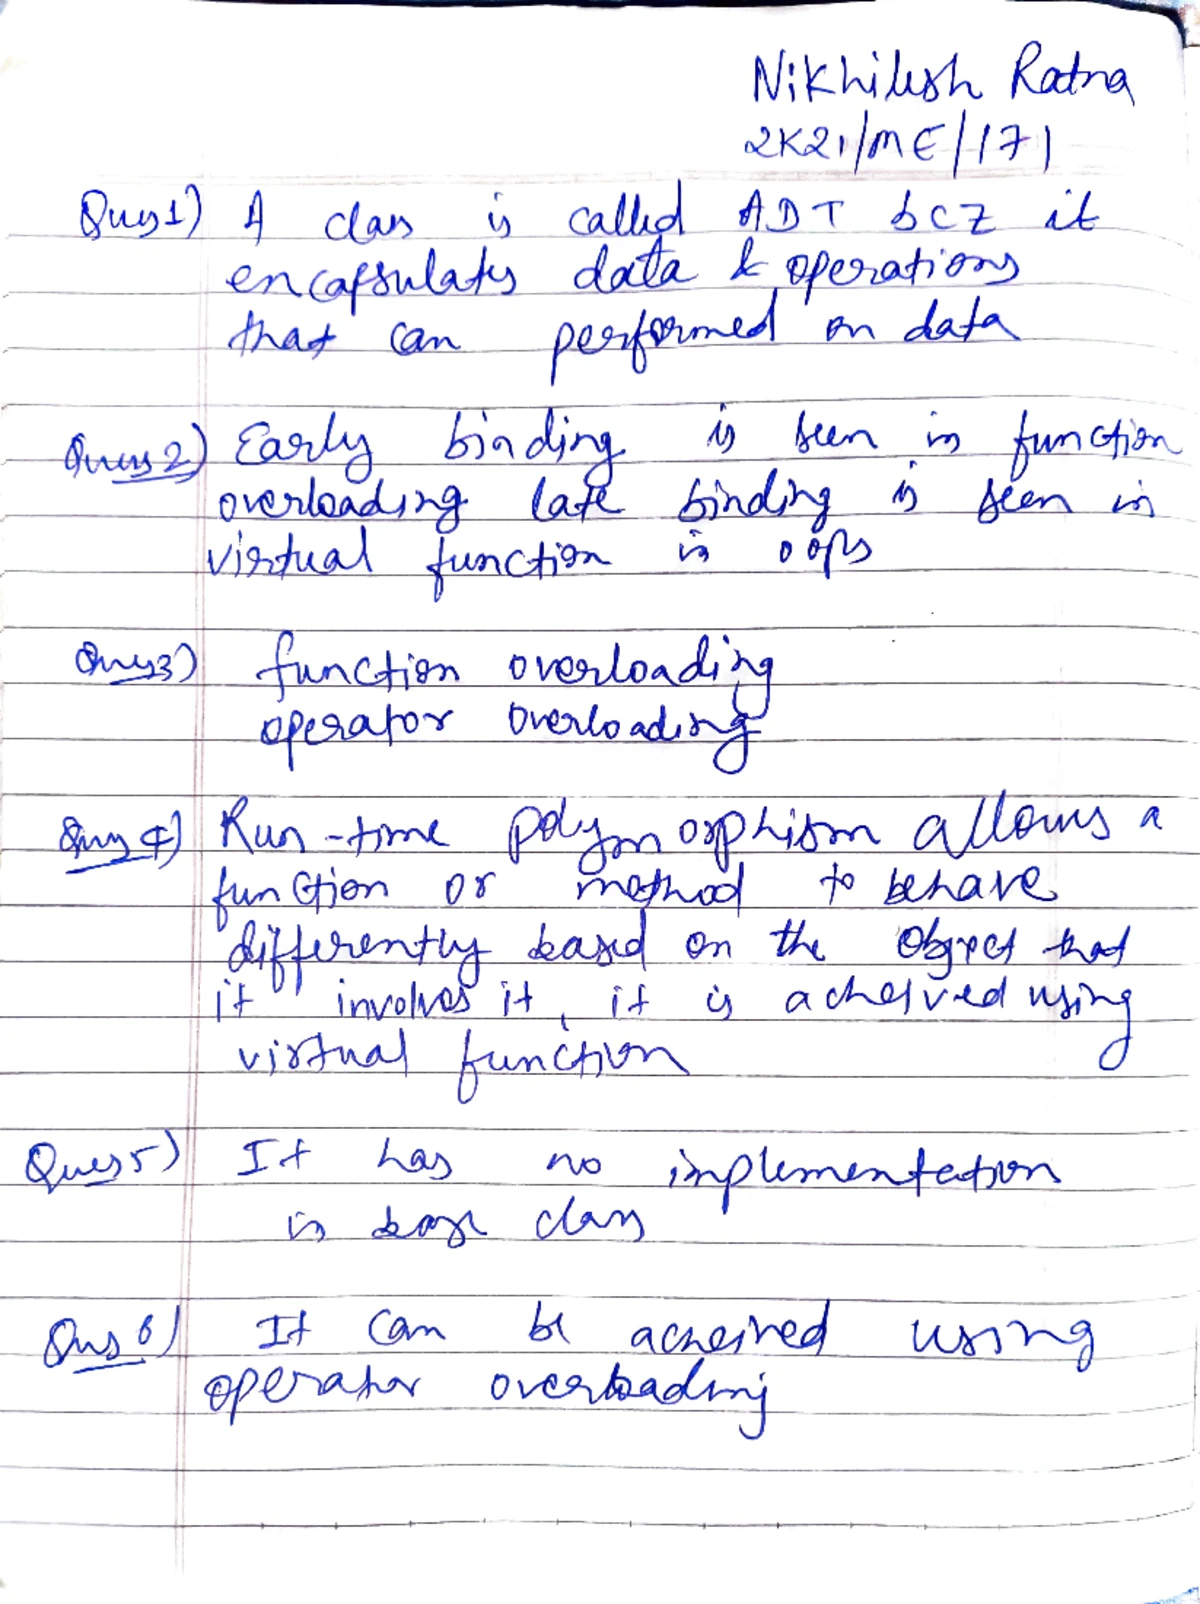 Nikhilesh Ratna
2K21/ME/171
Ques1) A class is called ADT bcz it
encapsulates data & operations
that can performed on data
Ques2) Early binding is seen in function
overloading late binding is seen in
virtual function in oops
Ques3) function overloading
operator overloading
Ques4) Run-time polymorphism allows a
function or method to behave
differently based on the object that
it involves it, it is acheived using
virtual function
Ques5) It has no implementation
in base class
Ques6) It can be acheived using
operator overloading